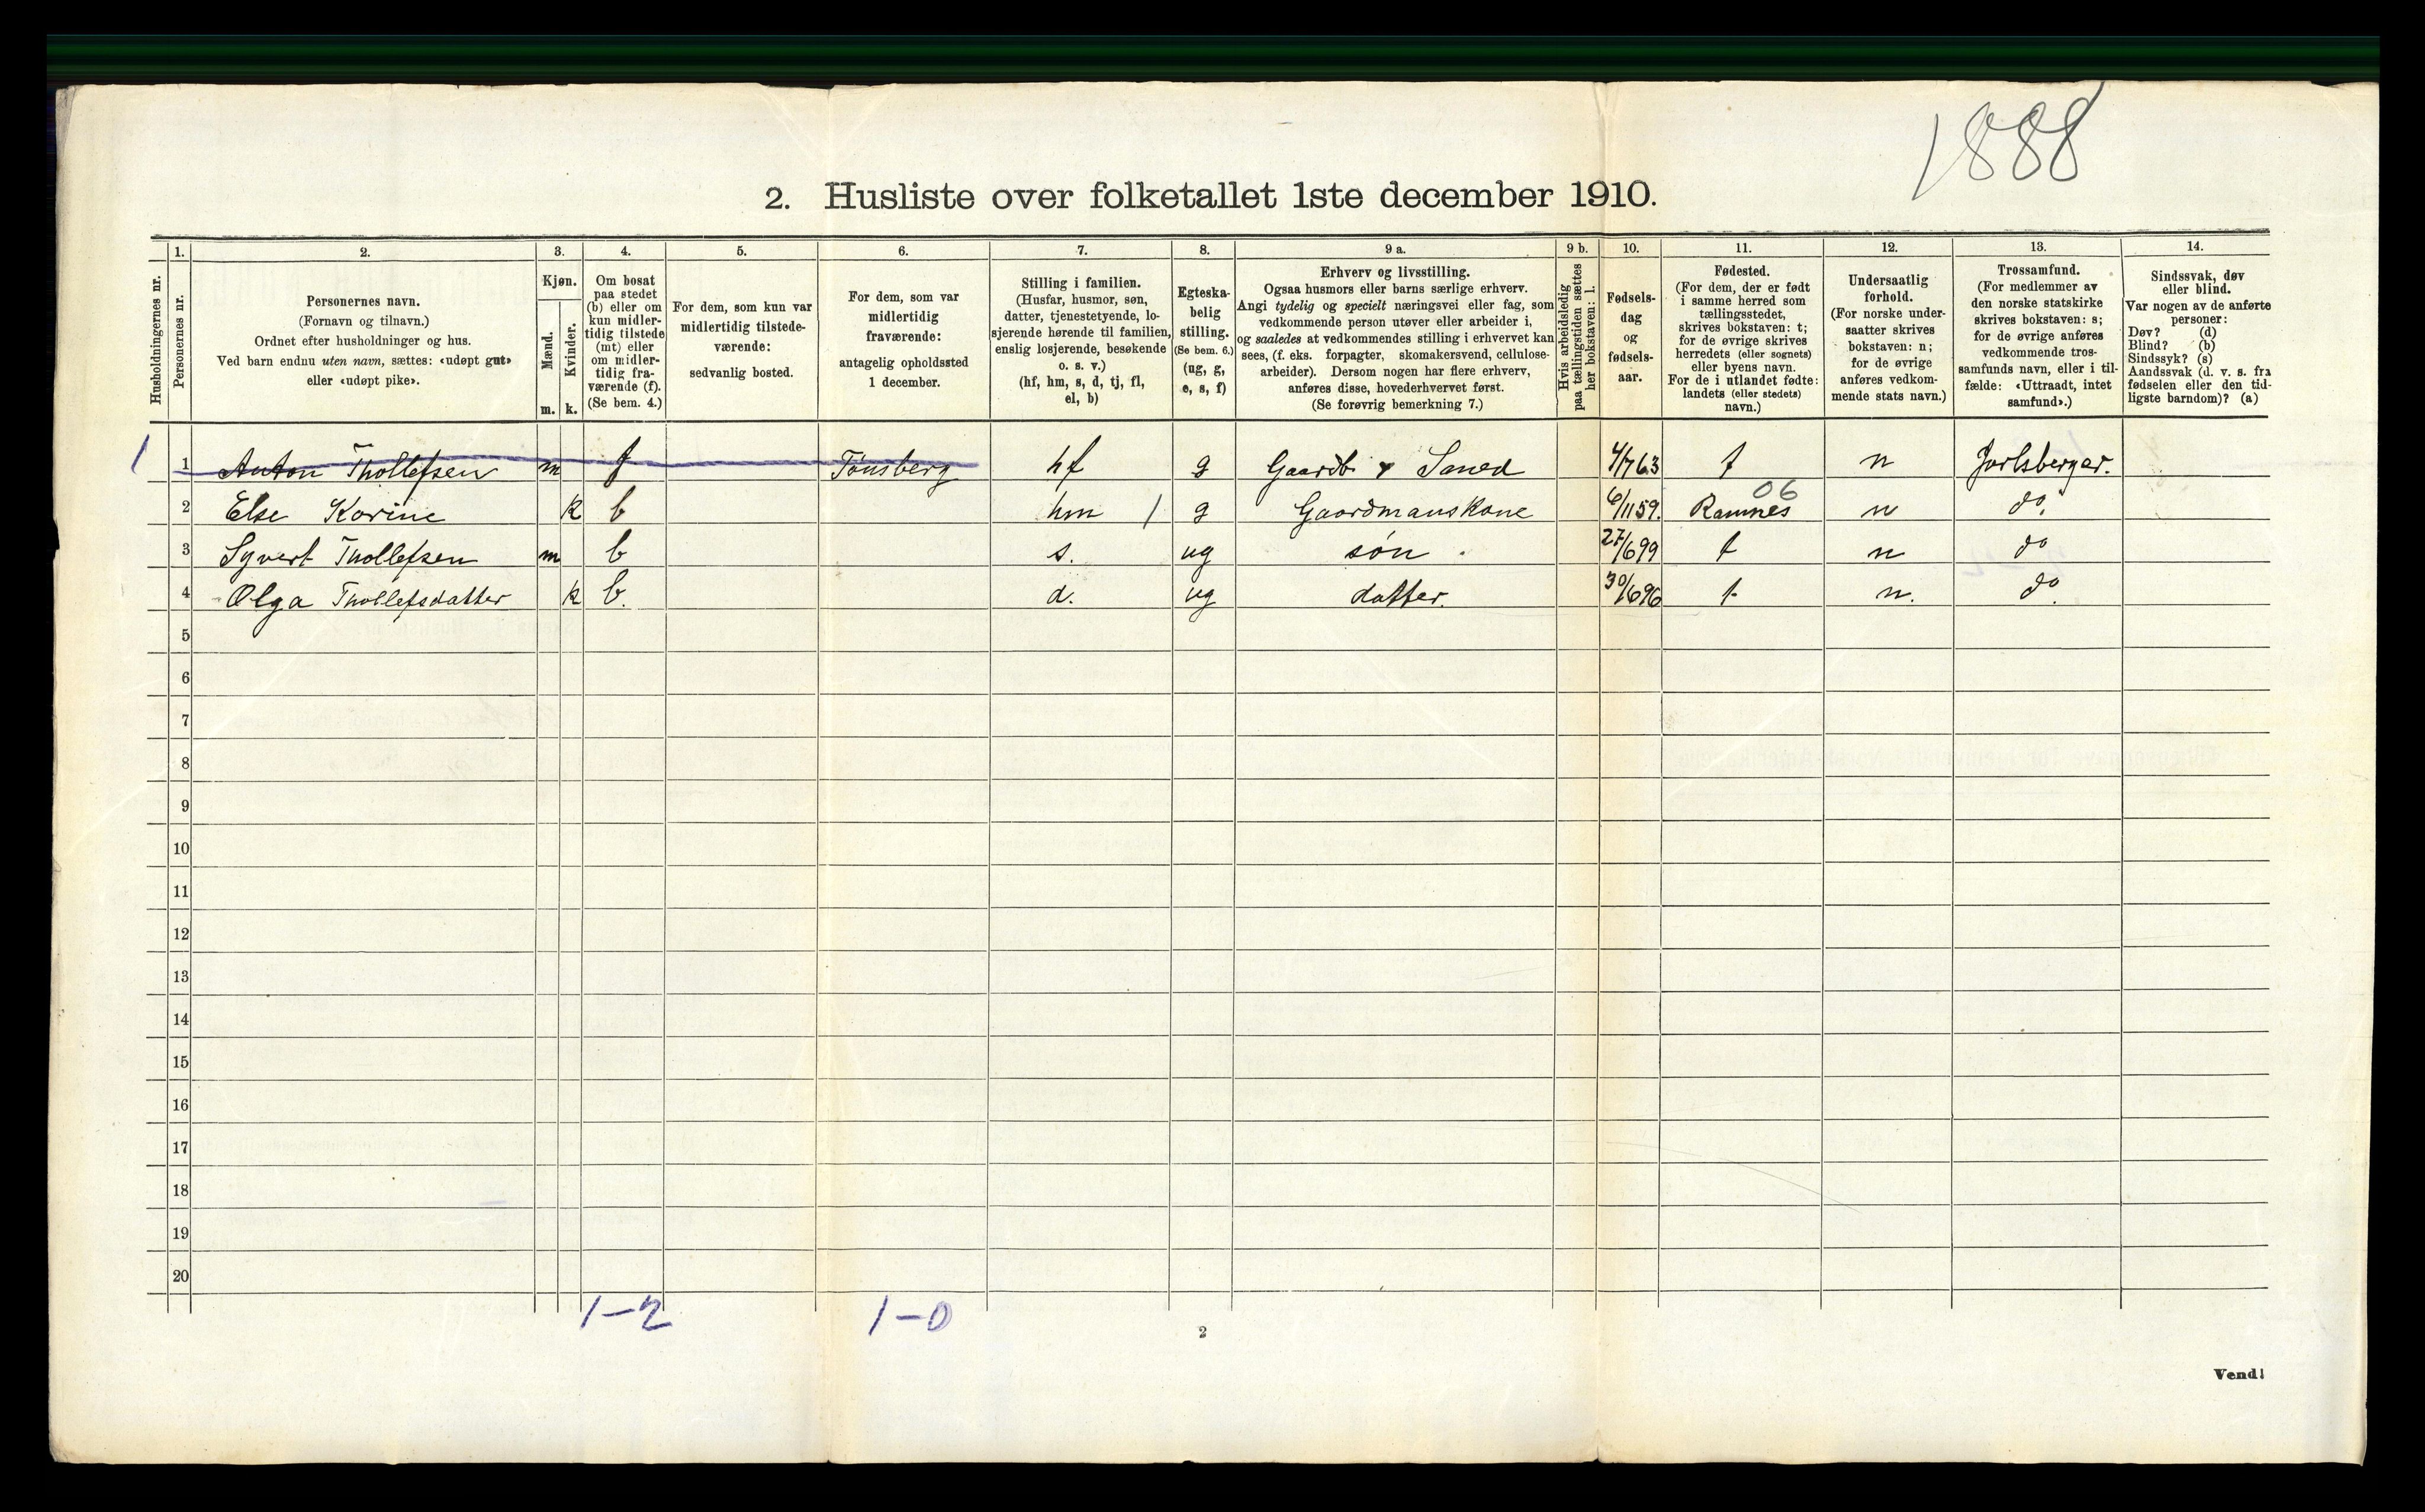 1888
2. Husliste over folketallet 1ste december 1910.
Husholdningernes nr.
1. Personernes nr.
2. Personernes navn. (Fornavn og tilnavn.) Ordnet efter husholdninger og hus. Ved barn endnu uten navn, sættes: «udøpt gut» eller «udøpt pike».
3. Kjøn. Mænd. m. Kvinder. k.
4. Om bosat paa stedet (b) eller om kun midlertidig tilstede (mt) eller om midlertidig fraværende (f). (Se bem. 4.)
5. For dem, som kun var midlertidig tilstedeværende: sedvanlig bosted.
6. For dem, som var midlertidig fraværende: antagelig opholdssted 1 december.
7. Stilling i familien. (Husfar, husmor, søn, datter, tjenestetyende, losjerende hørende til familien, enslig losjerende, besøkende o. s. v.) (hf, hm, s, d, tj, fl, el, b)
8. Egteskabelig stilling. (Se bem. 6.) (ug, g, e, s, f)
9 a. Erhverv og livsstilling. Ogsaa husmors eller barns særlige erhverv. Angi tydelig og specielt næringsvei eller fag, som vedkommende person utøver eller arbeider i, og saaledes at vedkommendes stilling i erhvervet kan sees, (f. eks. forpagter, skomakersvend, cellulosearbeider). Dersom nogen har flere erhverv, anføres disse, hovederhvervet først. (Se forøvrig bemerkning 7.)
9 b. Hvis arbeidsledig paa tællingstiden sættes her bokstaven: l.
10. Fødselsdag og fødselsaar.
11. Fødested. (For dem, der er født i samme herred som tællingsstedet, skrives bokstaven: t; for de øvrige skrives herredets (eller sognets) eller byens navn. For de i utlandet fødte: landets (eller stedets) navn.)
12. Undersaatlig forhold. (For norske undersaatter skrives bokstaven: n; for de øvrige anføres vedkommende stats navn.)
13. Trossamfund. (For medlemmer av den norske statskirke skrives bokstaven: s; for de øvrige anføres vedkommende trossamfunds navn, eller i tilfælde: «Uttraadt, intet samfund».)
14. Sindssvak, døv eller blind. Var nogen av de anførte personer: Døv? (d) Blind? (b) Sindssyk? (s) Aandssvak (d. v. s. fra fødselen eller den tidligste barndom)? (a)
1 1 Anton Thollefsen m f Tønsberg hf g Gaardb. 4/7 63 t n Jarlsberger.
2 Else Karine k b hm / g Gaardmanskone 6/11 59. Ramnes 06 n do.
3 Syvert Thollefsen m b s. ug søn 27/6 99 t n do
4 Olga Thollefsdatter k b. d. ug datter. 30/6 96 t n. do.
5
6
7
8
9
10
11
12
13
14
15
16
17
18
19
20
1-2 1-0
2
Vend!